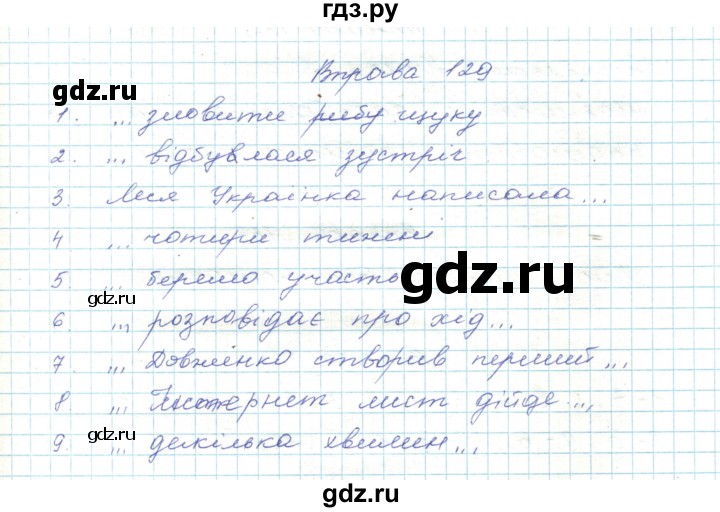 гдз.ру
gdz.ru
Вправа 129
1. ... зловити рибу щуку
2. ... відбувалася зустріч
3. Леся Українка написала...
4 ... чотири тижні
gdz.ru
5. ... беремо участь
gdz.ru
6. ... розповідає про хід...
7. ... Довженко створив перший...
8 ... Інтернет лист дійде...
gdz.ru
9. ... декілька хвилин...
gdz.ru